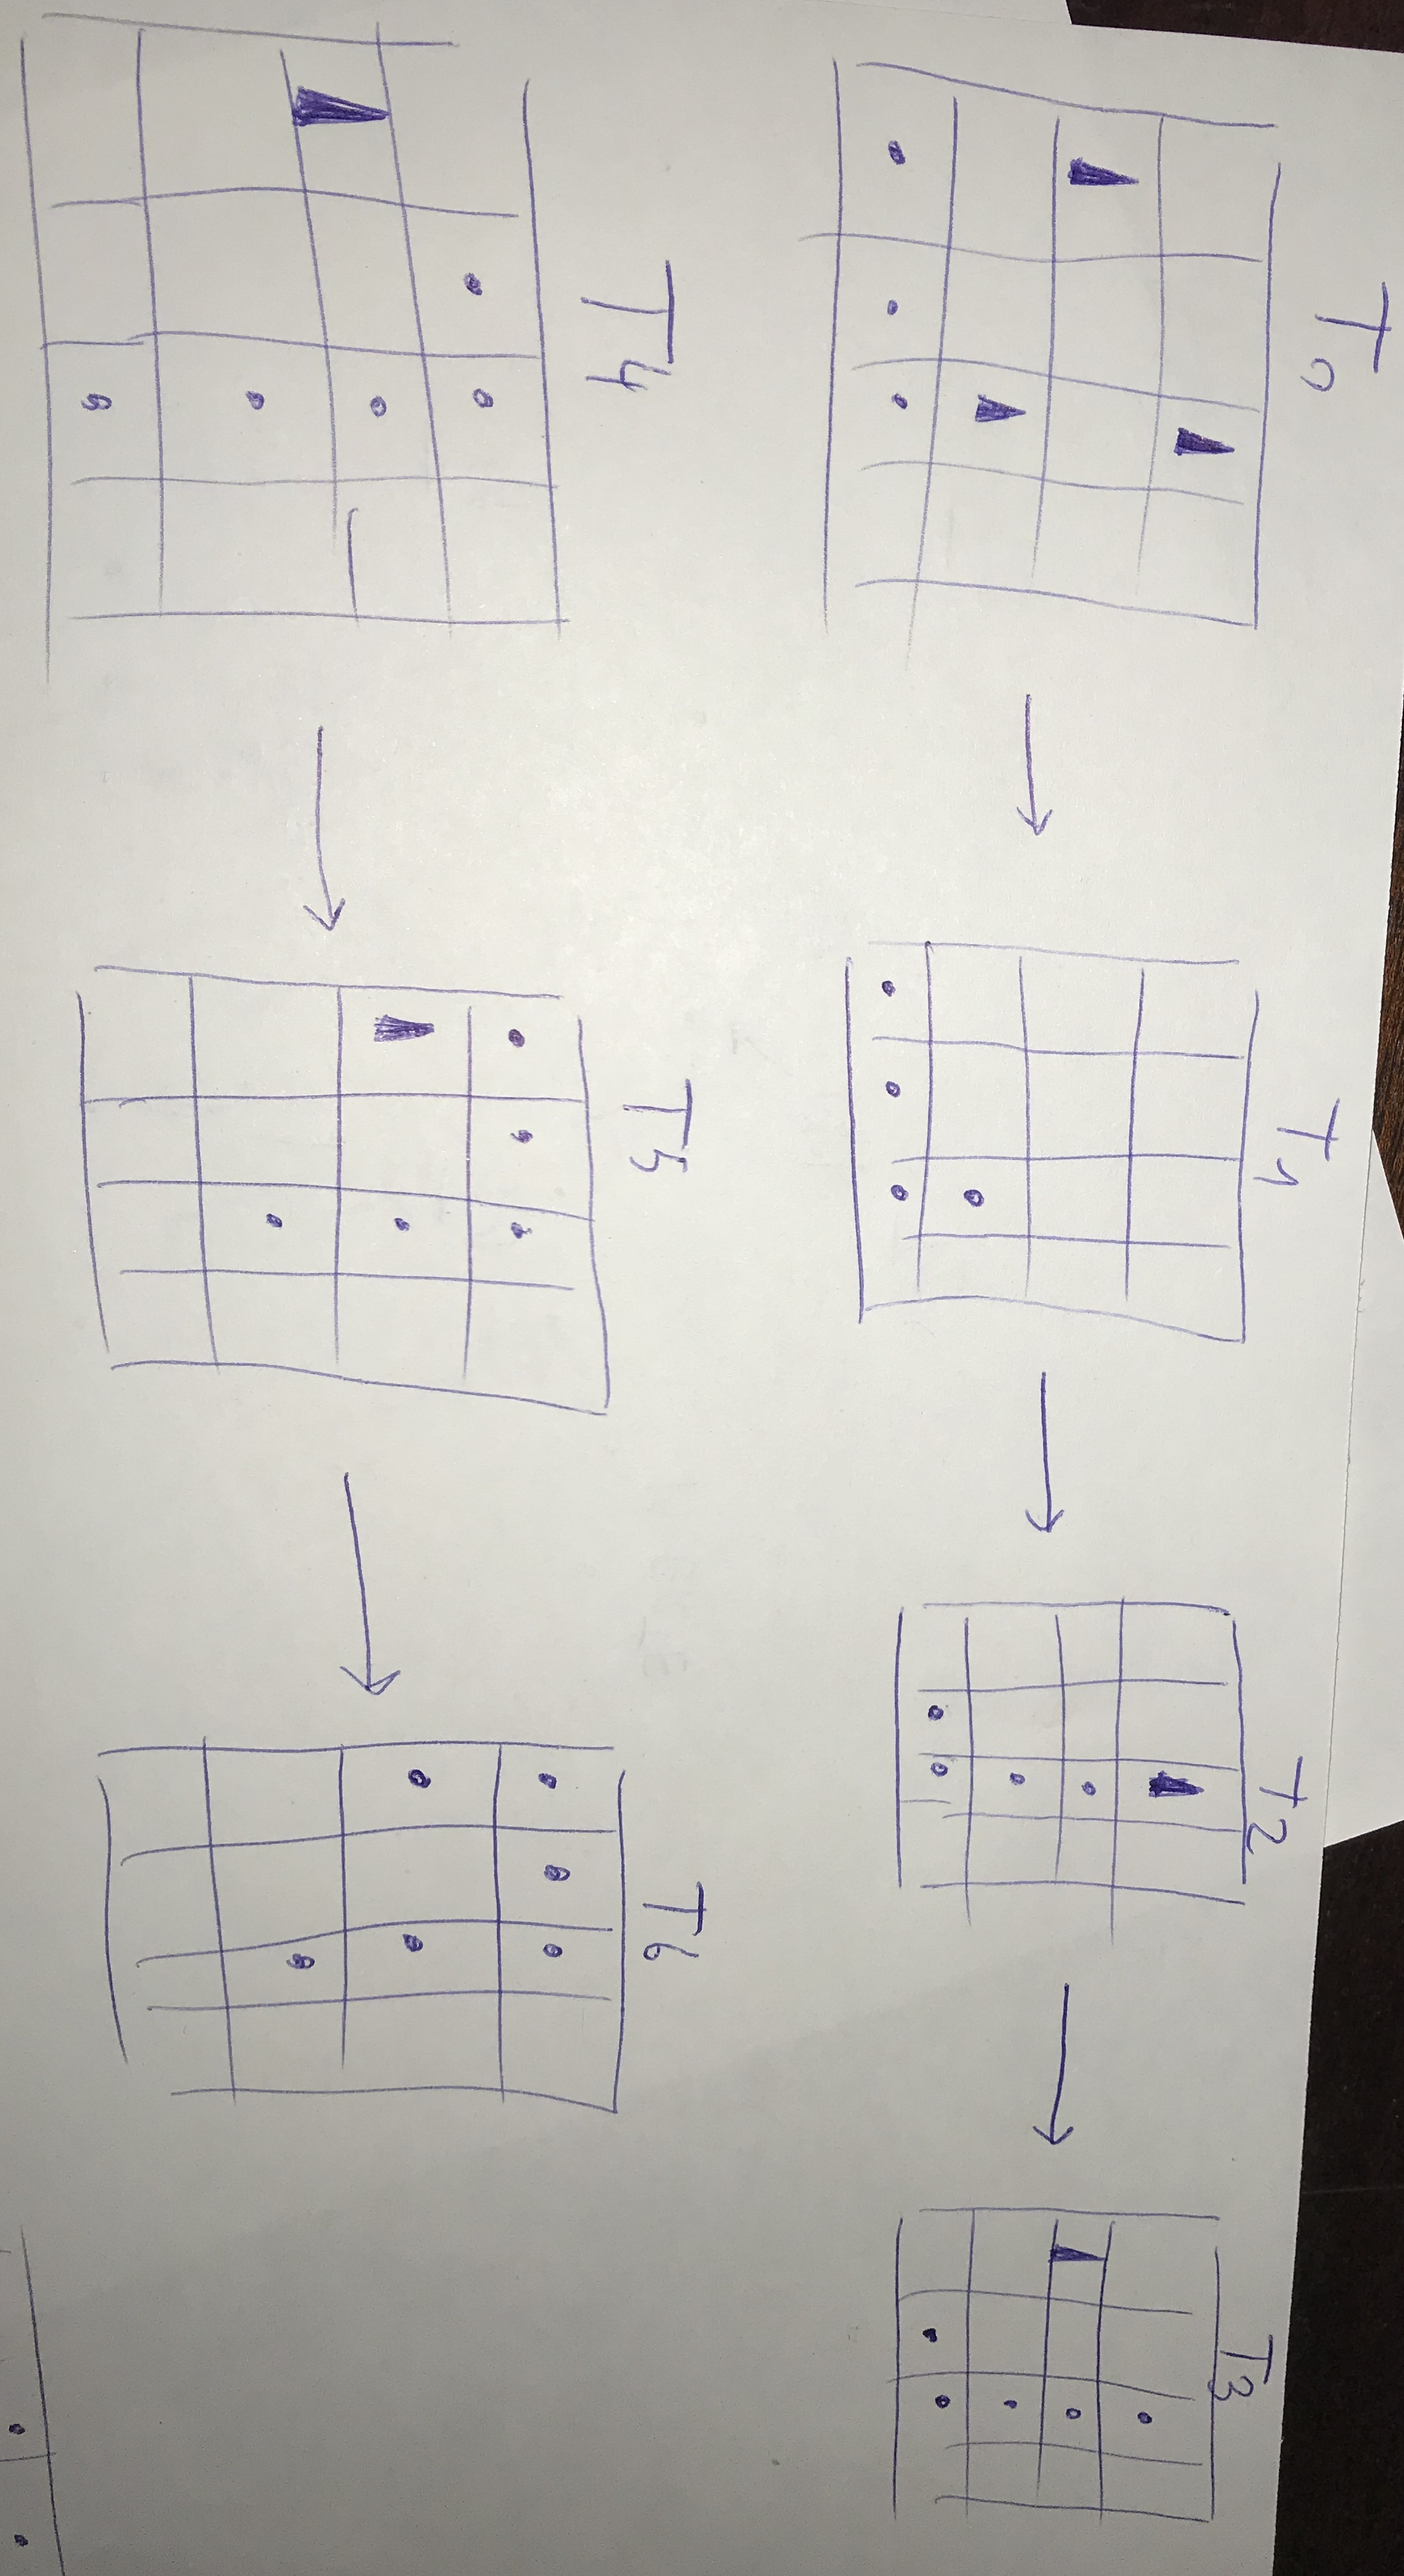 T0
T1
T2
T3
T4
T5
T6